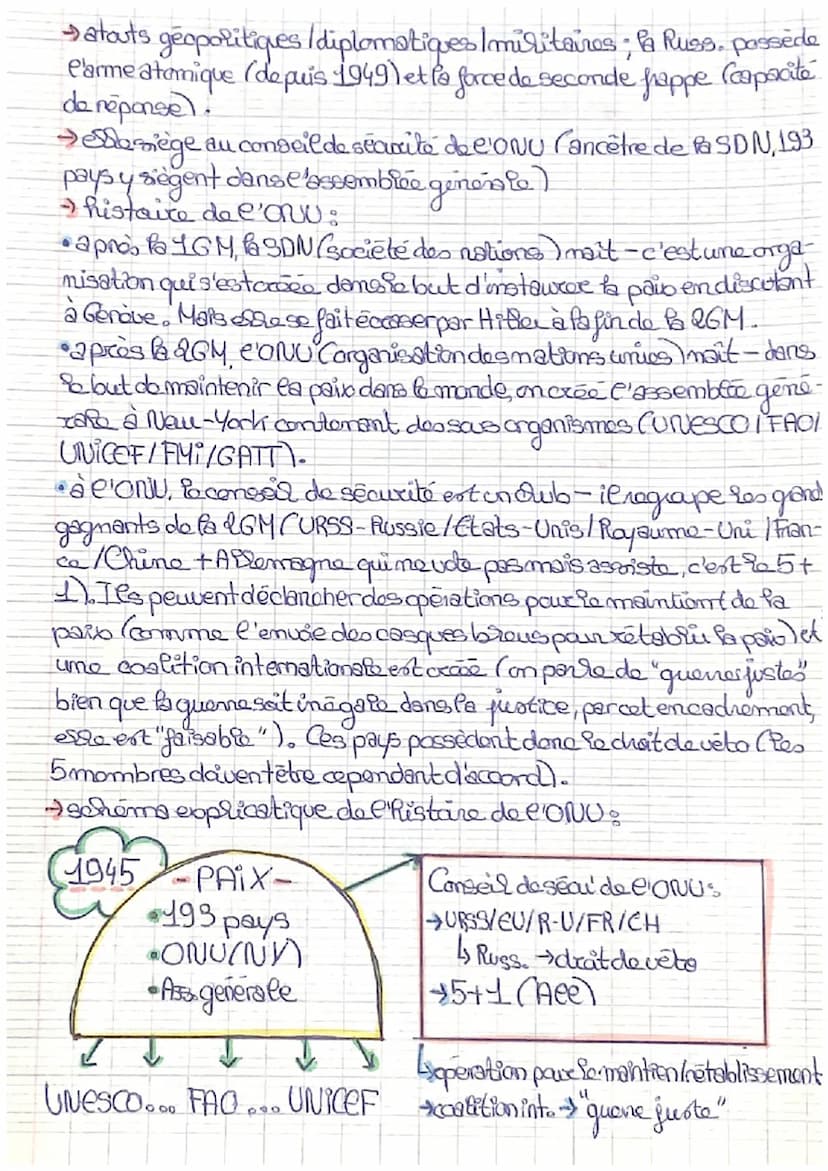 → atouts géopolitiques/diplomatiques/militaires : la Russ. possède
l'arme atomique (depuis 1949) et la force de seconde frappe (capacité
de réponse).
→ elle siège au conseil de sécurité de l'ONU (ancêtre de la SDN, 193
pays y siègent dans l'assemblée générale)
→ histoire de l'ONU :
• après la 1GM, la SDN (société des nations) naît - c'est une orga-
nisation qui s'est créée dans le but d'instaurer la paix en discutant
à Genève. Mais elle se fait écraser par Hitler à la fin de la 2GM.
• après la 2GM, l'ONU (organisation des nations unies) naît - dans
le but de maintenir la paix dans le monde, on créé l'assemblée géné-
rale à New-York contenant des sous organismes (UNESCO/FAO/
UNICEF/FMI/GATT).
• à l'ONU, le conseil de sécurité est un club - il regroupe les grand
gagnants de la 2GM (URSS-Russie/Etats-Unis/Royaume-Uni/Fran-
ce/Chine + Allemagne qui ne vote pas mais assiste, c'est le 5+
1). Ils peuvent déclencher des opérations pour le maintient de la
paix (comme l'envoie des casques bleus pour rétablir la paix) et
une coalition internationale est créée (on parle de "guerres justes"
bien que la guerre soit inégale dans la justice, par cet encadrement,
elle est "faisable"). Ces pays possèdent donc le droit de véto (les
5 membres doivent être cependant d'accord).
→ schéma explicatique de l'histoire de l'ONU :
1945
- PAIX -
• 193 pays
• ONU (NY)
• Ass. générale
UNESCO... FAO... UNICEF
Conseil de sécu' de l'ONU :
→ URSS/EU/R-U/FR/CH
↳ Russ. → droit de véto
→ 5+1 (All)
↳ opération pour le maintien/rétablissement
→ coalition int. → "guerre juste"